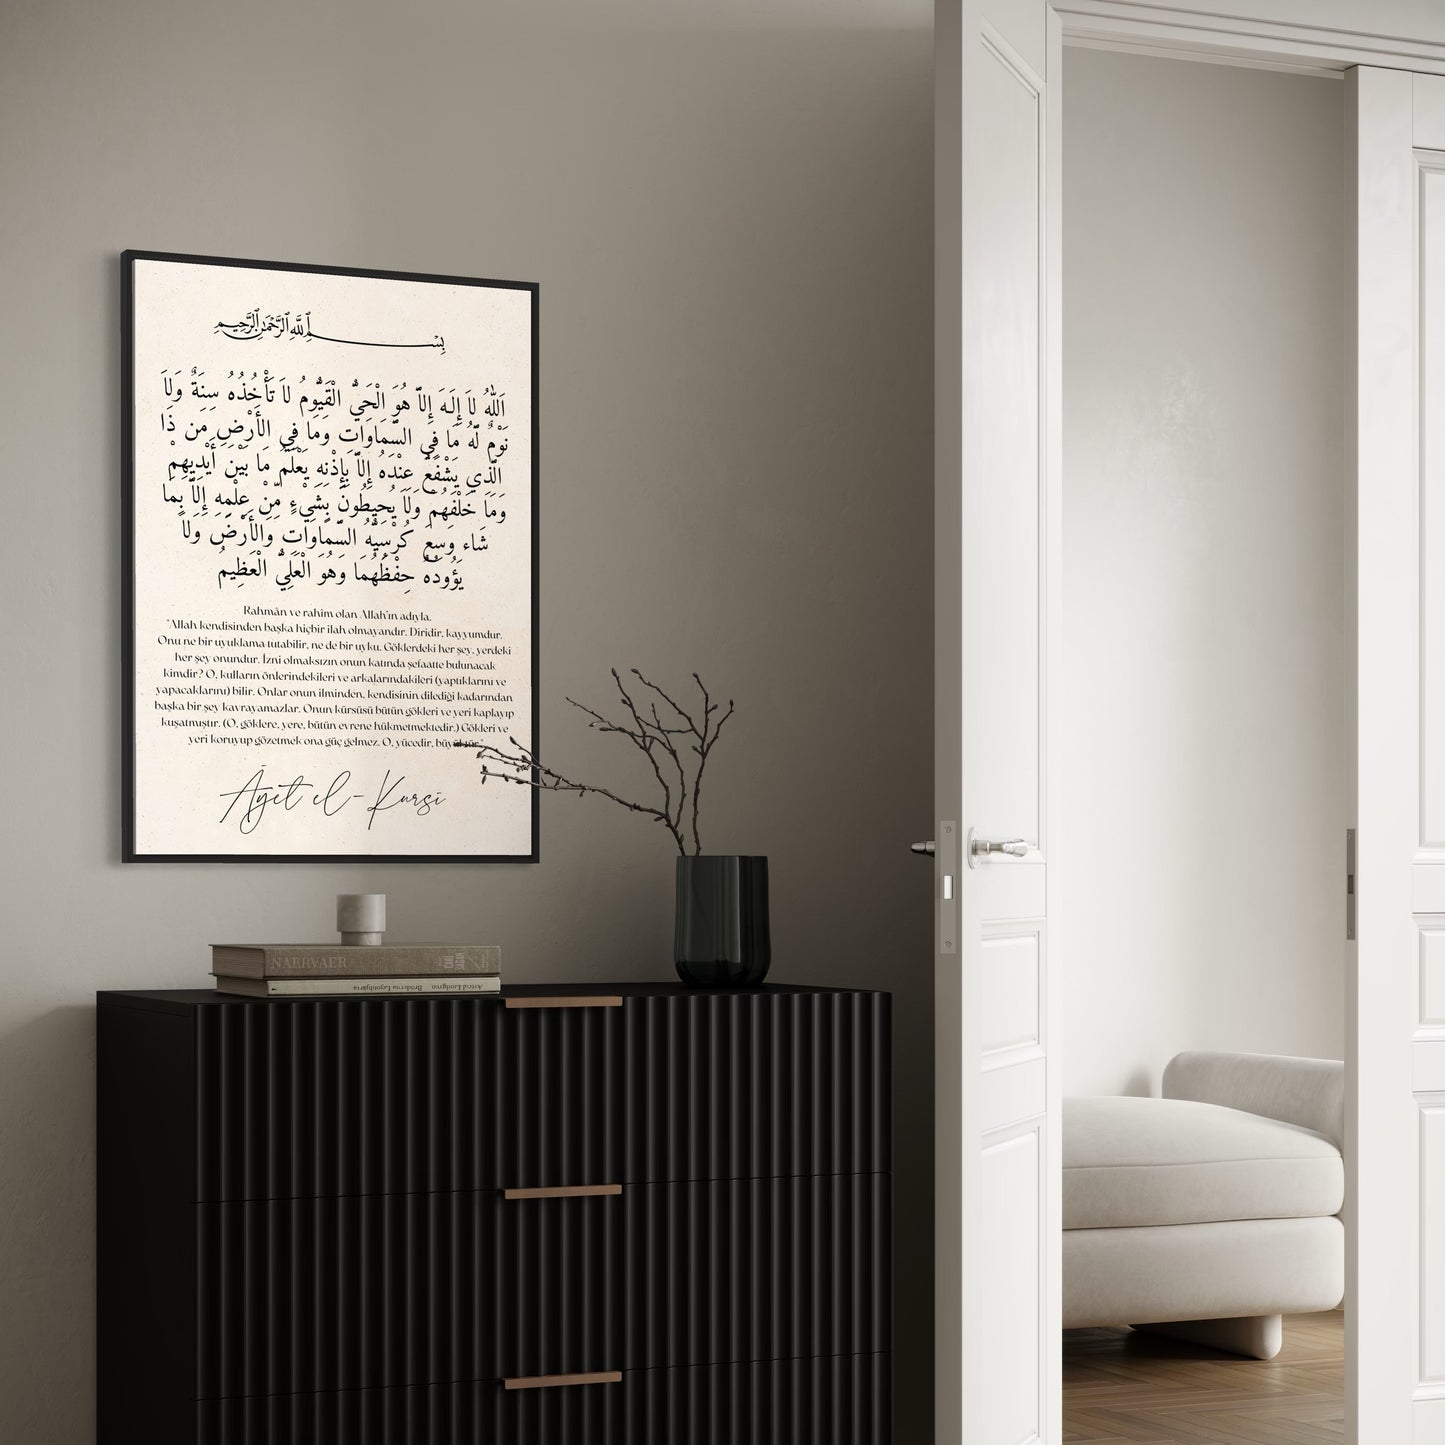 بِسْمِ ٱللَّهِ ٱلرَّحْمَٰنِ ٱلرَّحِيمِ
اَللّٰهُ لاَ إِلَهَ إِلاَّ هُوَ الْحَيُّ الْقَيُّومُ لاَ تَأْخُذُهُ سِنَةٌ وَلاَ
نَوْمٌ لَّهُ مَا فِي السَّمَاوَاتِ وَمَا فِي الأَرْضِ مَن ذَا
الَّذِي يَشْفَعُ عِنْدَهُ إِلاَّ بِإِذْنِهِ يَعْلَمُ مَا بَيْنَ أَيْدِيهِمْ
وَمَا خَلْفَهُمْ وَلاَ يُحِيطُونَ بِشَيْءٍ مِّنْ عِلْمِهِ إِلاَّ بِمَا
شَاء وَسِعَ كُرْسِيُّهُ السَّمَاوَاتِ وَالأَرْضَ وَلاَ
يَؤُودُهُ حِفْظُهُمَا وَهُوَ الْعَلِيُّ الْعَظِيمُ
Rahmân ve rahîm olan Allah'ın adıyla.
"Allah kendisinden başka hiçbir ilah olmayandır. Diridir, kayyumdur.
Onu ne bir uyuklama tutabilir, ne de bir uyku. Göklerdeki her şey, yerdeki
her şey onundur. İzni olmaksızın onun katında şefaatte bulunacak
kimdir? O, kulların önlerindekileri ve arkalarındakileri (yaptıklarını ve
yapacaklarını) bilir. Onlar onun ilminden, kendisinin dilediği kadarından
başka bir şey kavrayamazlar. Onun kürsüsü bütün gökleri ve yeri kaplayıp
kuşatmıştır. (O, göklere, yere, bütün evrene hükmetmektedir.) Gökleri ve
yeri koruyup gözetmek ona güç gelmez. O, yücedir, büyüktür."
Âyet el-Kursî
NAERVAER
CARL SAGAN
Astrid Lindgren Bröderna Lejonhjärta